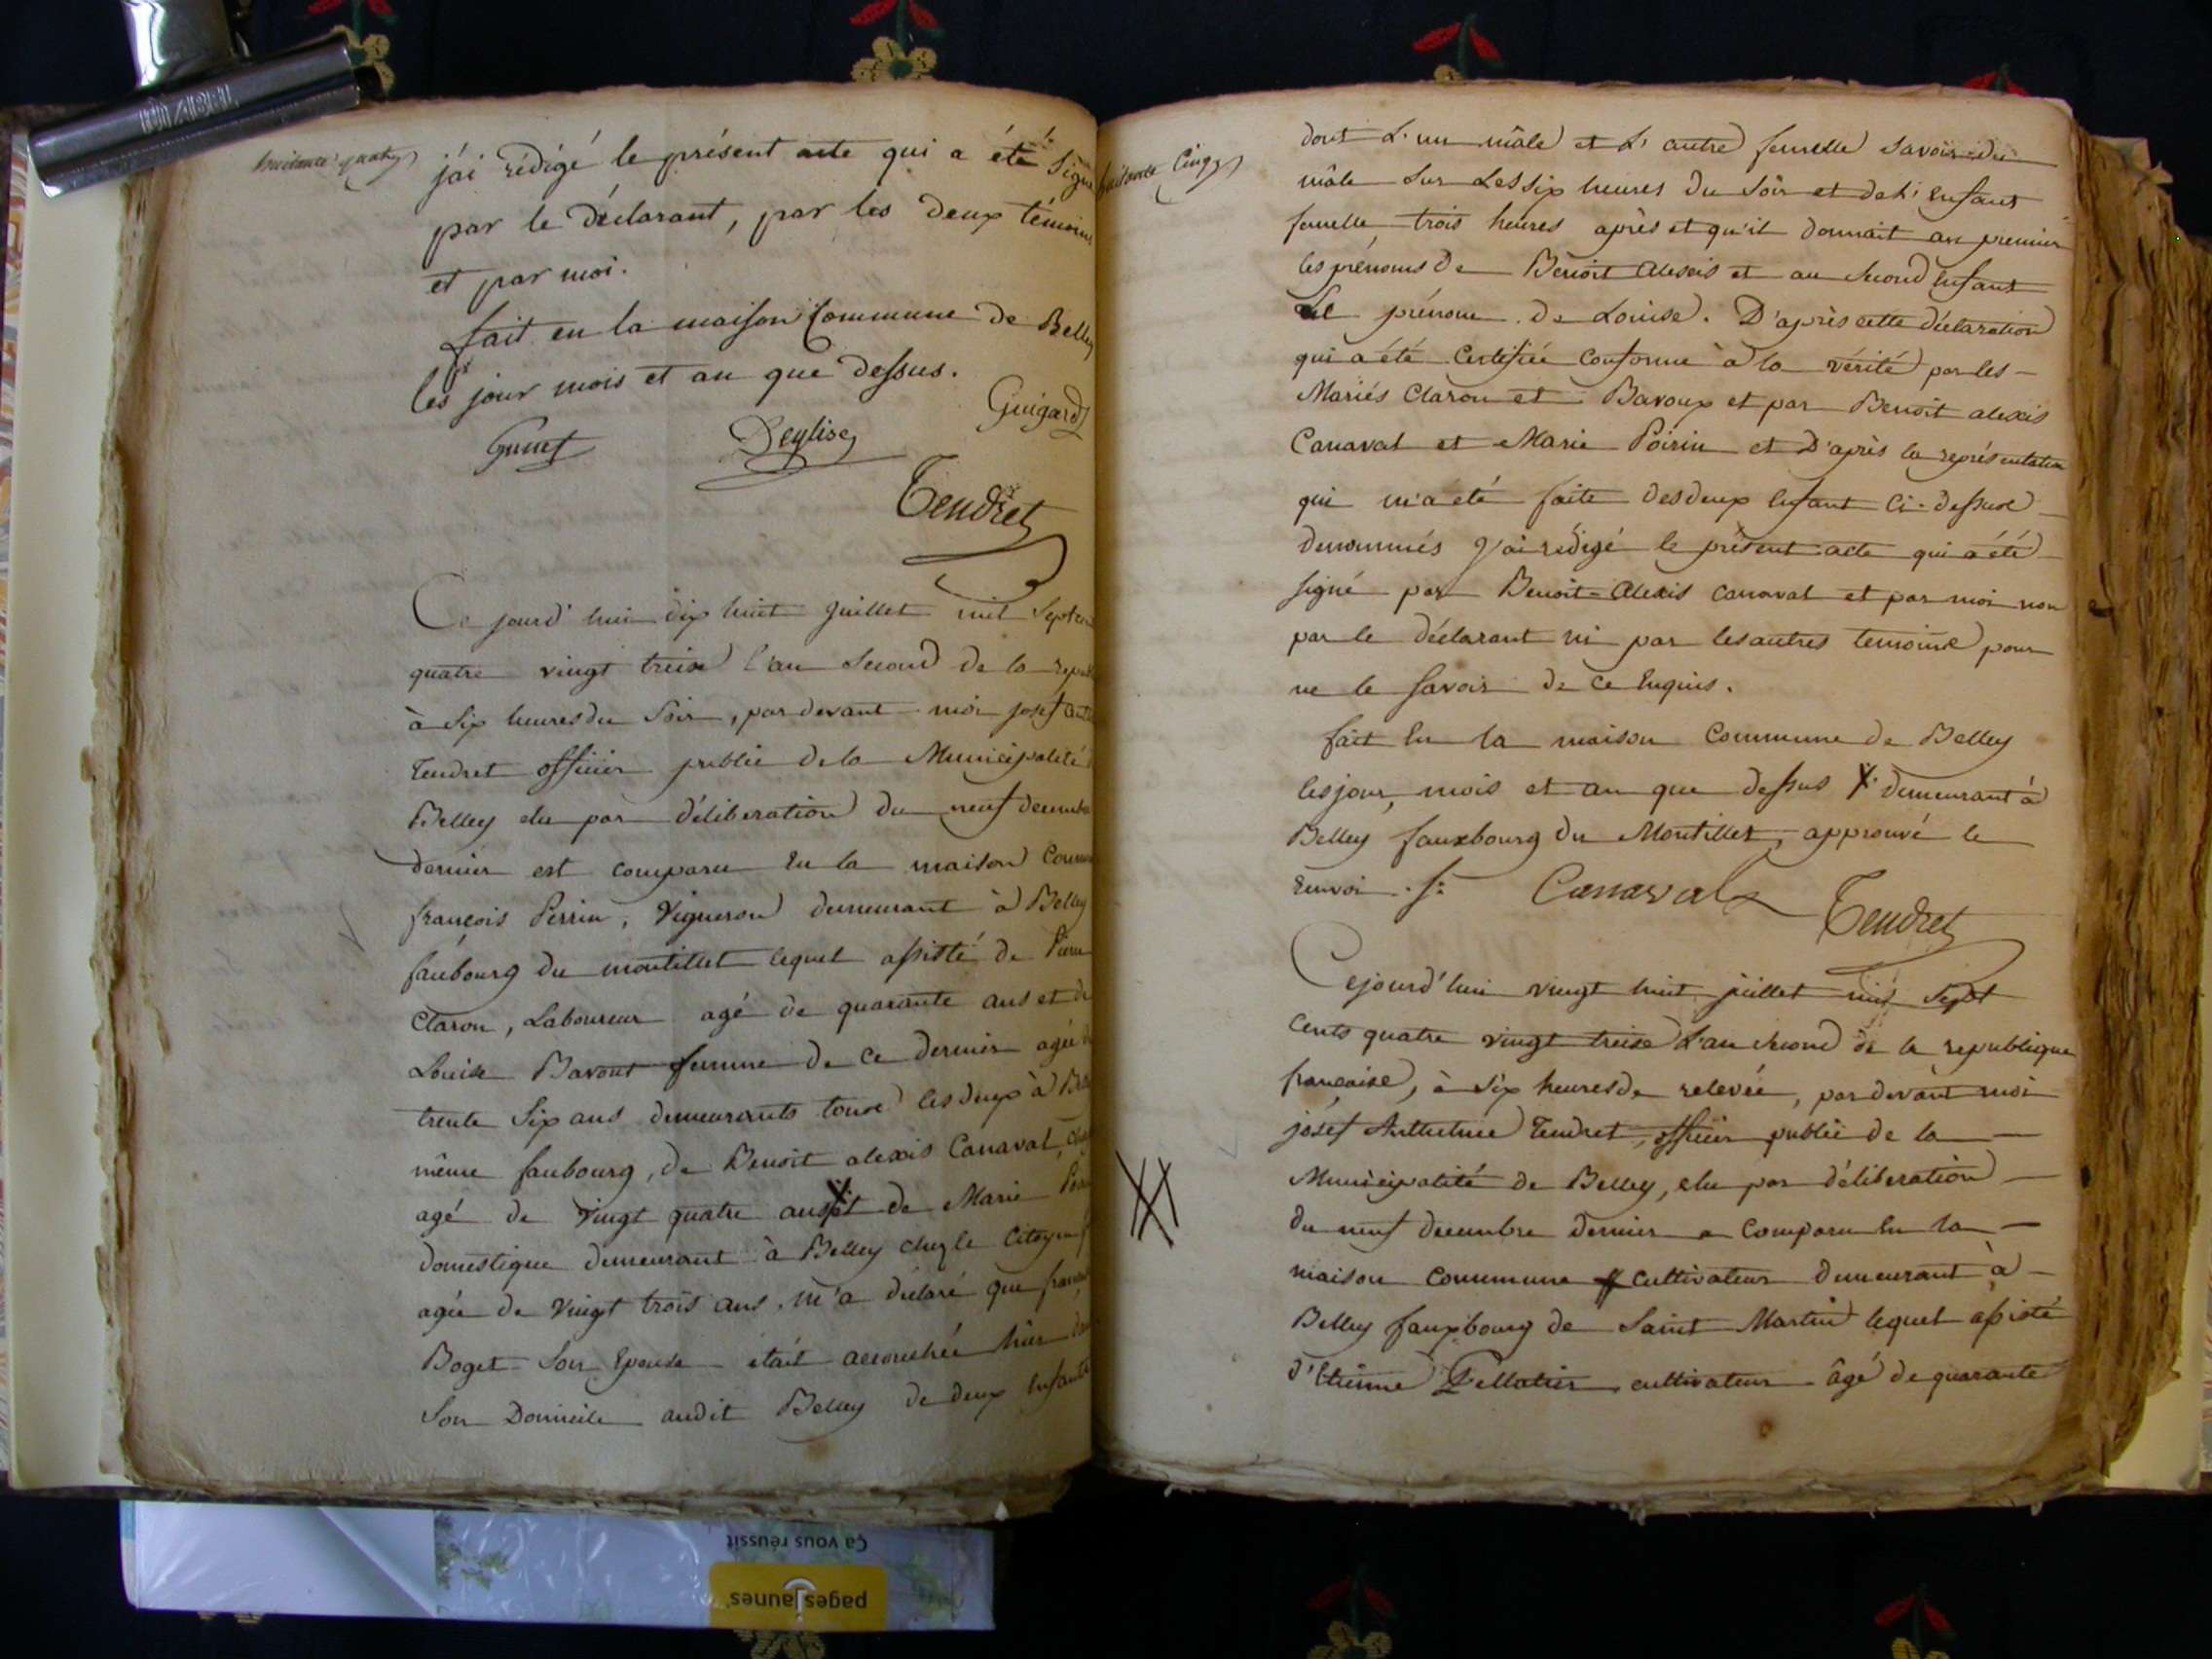 huitante quatre
j'ai rédigé le présent acte qui a été signé
par le déclarant, par les deux témoins
et par moi.
fait en la maison Commune de Belley
les jour mois et an que dessus.
Guigard
Deglise
Tendret
Ce jourd'hui dix huit juillet mil Sept
quatre vingt treize l'an Second de la
à Six heures du Soir, par devant moi josef
Tendret officier public de la Municipalité
Belley elu par déliberation du neuf decembre
dernier est comparu En la maison
françois Perrin, Vigneron demeurant à Belley
faubourg du montillet lequel assisté de
Claron, Laboureur agé de quarante ans et de
Louise Bavout femme de ce dernier agée
trente Six ans demeurants tous les deux à
même faubourg, de Benoit alexis Canaval,
agé de Vingt quatre ans X et de Marie
domestique demeurant à Belley chez le Citoyen
agée de Vingt trois ans, m'a déclaré que
Boget Son Epouse était accouchée hier
Son Domicile audit Belley de deux Enfants
huitante Cinq
dont L'un mâle et L'autre femelle Savoir du
mâle Sur Les Six heures du Soir et de L'Enfant
femelle trois heures après et qu'il donnait au premier
les prénoms de Benoit Alexis et au Second Enfant
Le prénom de Louise. D'après cette déclaration
qui a été Certifiée Conforme à la vérité par les
Mariés Claron et Bavoux et par Benoit alexis
Canaval et Marie Poirin et D'après la représentation
qui m'a été faite des deux Enfant Ci-dessus
denommés J'ai rédigé le présent acte qui a été
signé par Benoit-Alexis Canaval et par moi non
par le déclarant ni par les autres temoins pour
ne le Savoir de ce Enquis.
fait En la maison Commune de Belley
les jour, mois et an que dessus X demeurant à
Belley fauxbourg du Montillet, approuvé le
Renvoi.
Canaval
Tendret
Cejourd'hui vingt huit juillet mil Sept
Cents quatre vingt treize L'an Second de la republique
française, à Six heures de relevée, par devant moi
josef Anthelme Tendret, officier public de la
Municipalité de Belley, elu par déliberation
du neuf decembre dernier a Comparu En la
maison Commune cultivateur demeurant à
Belley fauxbourg de Saint Martin lequel assisté
d'Etienne Pellatier cultivateur âgé de quarante
Ça vous réussit
pagesJaunes